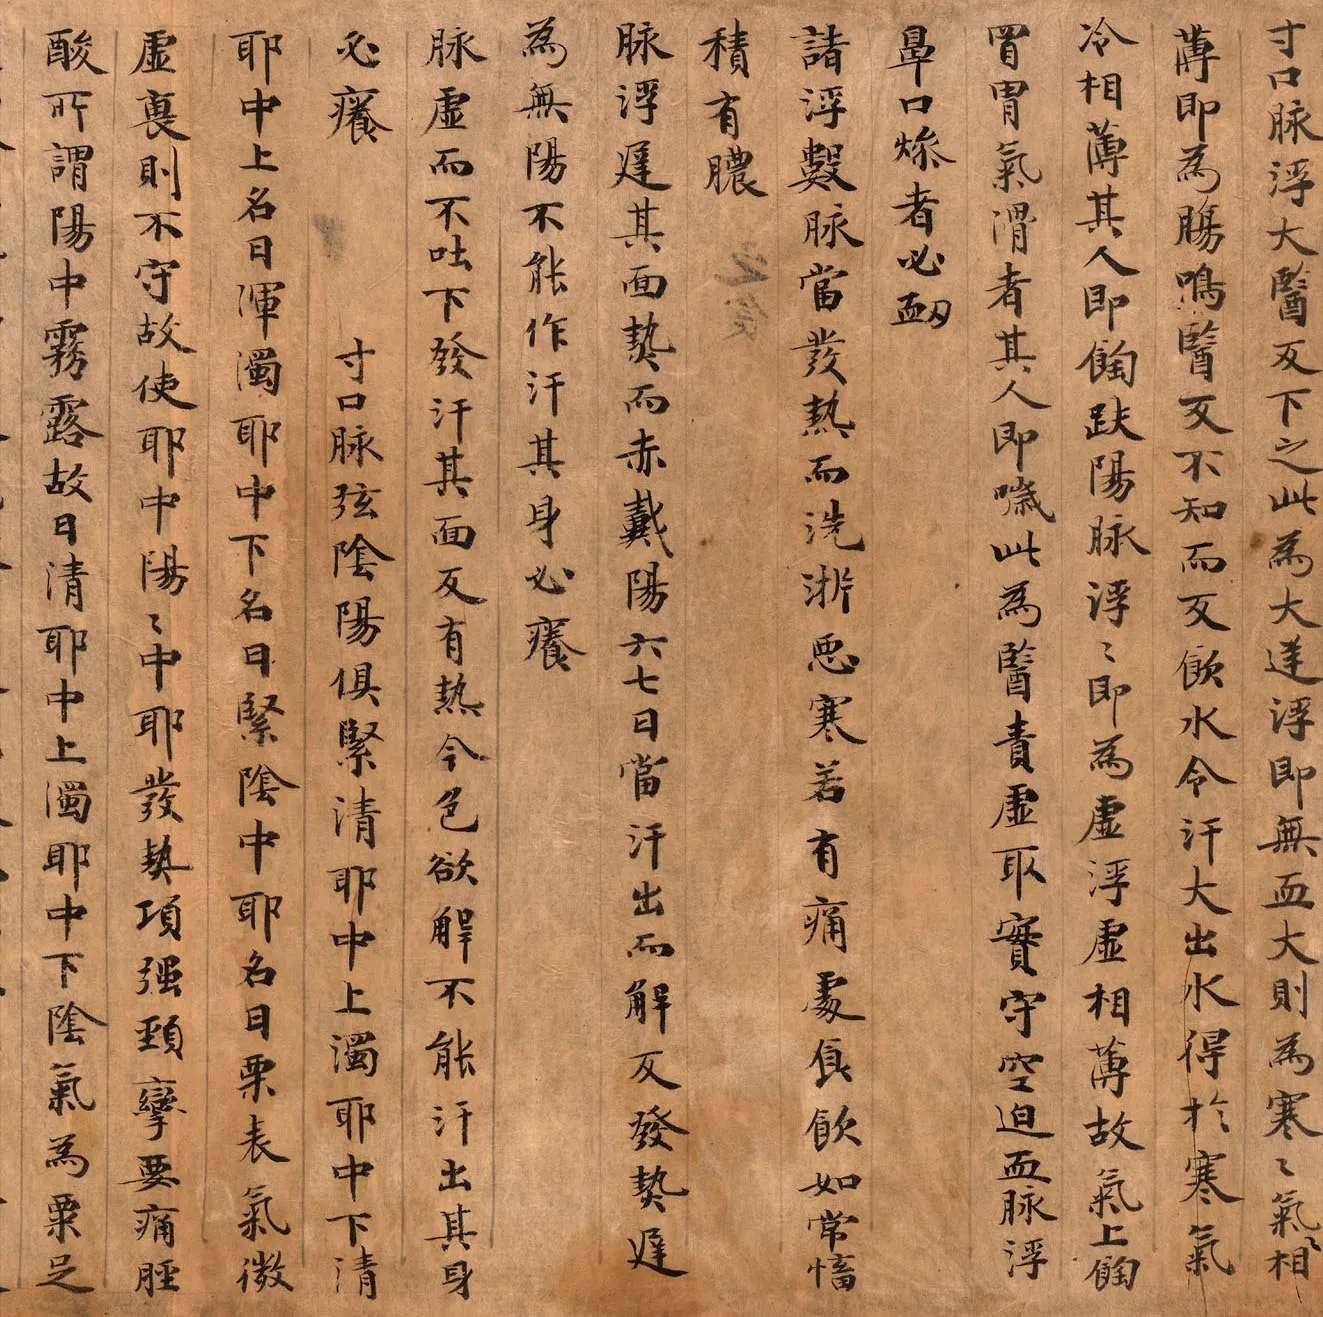 寸口脉浮大醫反下之此為大逆浮即無血大則為寒〻氣相
薄即為腸鳴醫反不知而反飲水令汗大出水得於寒氣
冷相薄其人即䭇趺陽脉浮〻即為虛浮虛相薄故氣上䭇
胃氣滑者其人即噦此為醫責虛取實守空迫血脉浮
鼻口燥者必衂
諸浮數脉當發熱而洗淅惡寒若有痛處食飲如常慉
積有膿
脉浮遲其面熱而赤戴陽六七日當汗出而解反發熱遲
為無陽不能作汗其身必癢
脉虛而不吐下發汗其面反有熱令色欲解不能汗出其身
必癢 寸口脉弦陰陽俱緊清耶中上濁耶中下清
耶中上名曰渾濁耶中下名曰緊陰中耶名曰栗表氣微
虛裏則不守故使耶中陽〻中耶發熱項强頸攣要痛脛
酸所謂陽中霧露故曰清耶中上濁耶中下陰氣為栗足